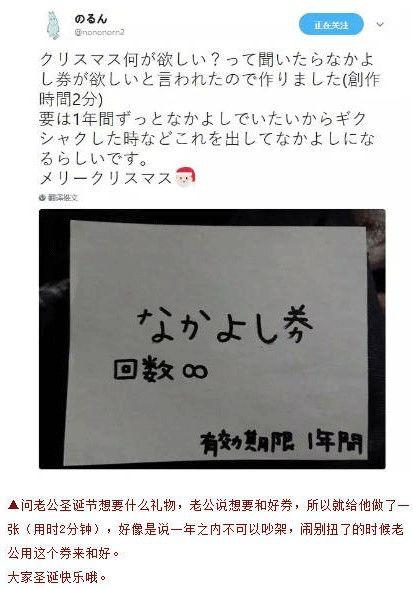 のるん
@nononorn2
正在关注
クリスマス何が欲しい？って聞いたらなかよ
し券が欲しいと言われたので作りました(創作
時間2分)
要は1年間ずっとなかよしでいたいからギク
シャクした時などこれを出してなかよしにな
るらしいです。
メリークリスマス🎅
翻译推文
なかよし券
回数∞
有効期限 1年間
▲问老公圣诞节想要什么礼物，老公说想要和好券，所以就给他做了一
张（用时2分钟），好像是说一年之内不可以吵架，闹别扭了的时候老
公用这个券来和好。
大家圣诞快乐哦。